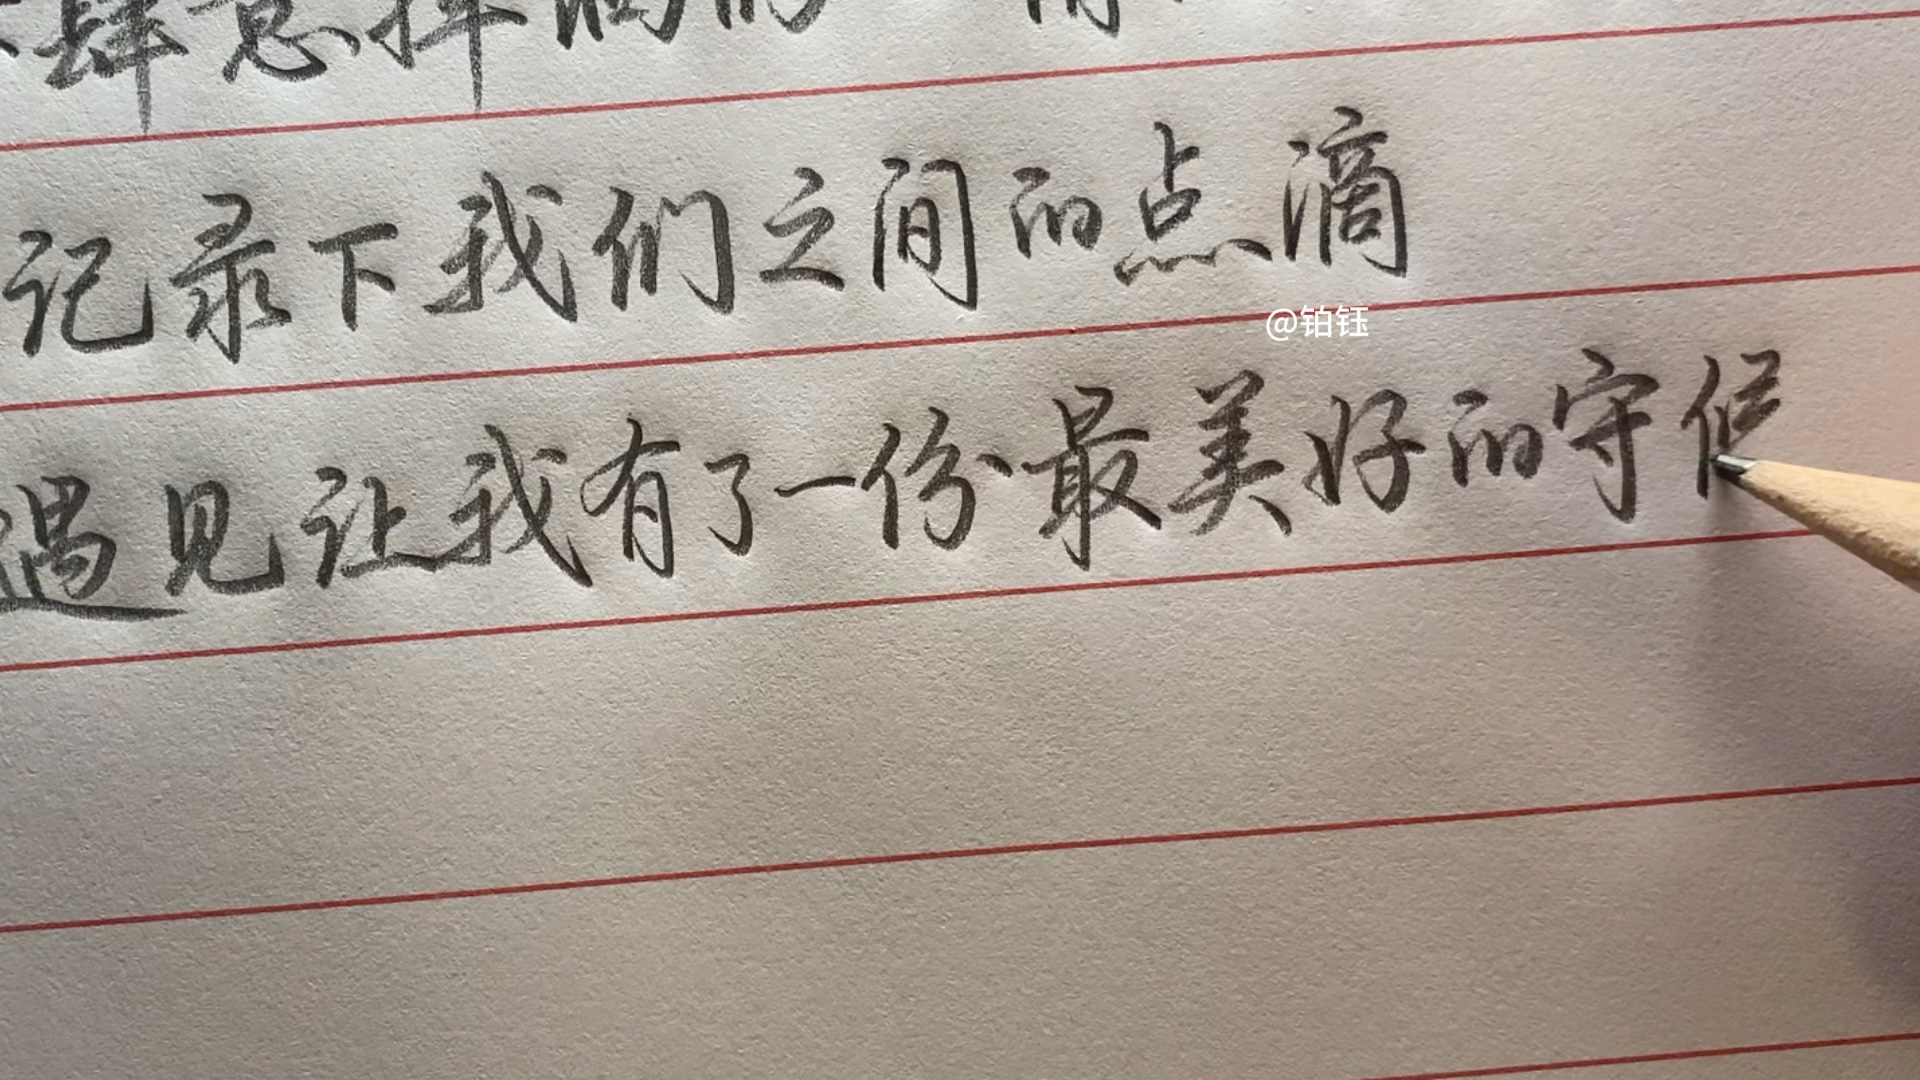 肆意挥洒
记录下我们之间的点滴
@铂钰
遇见让我有了一份最美好的守候